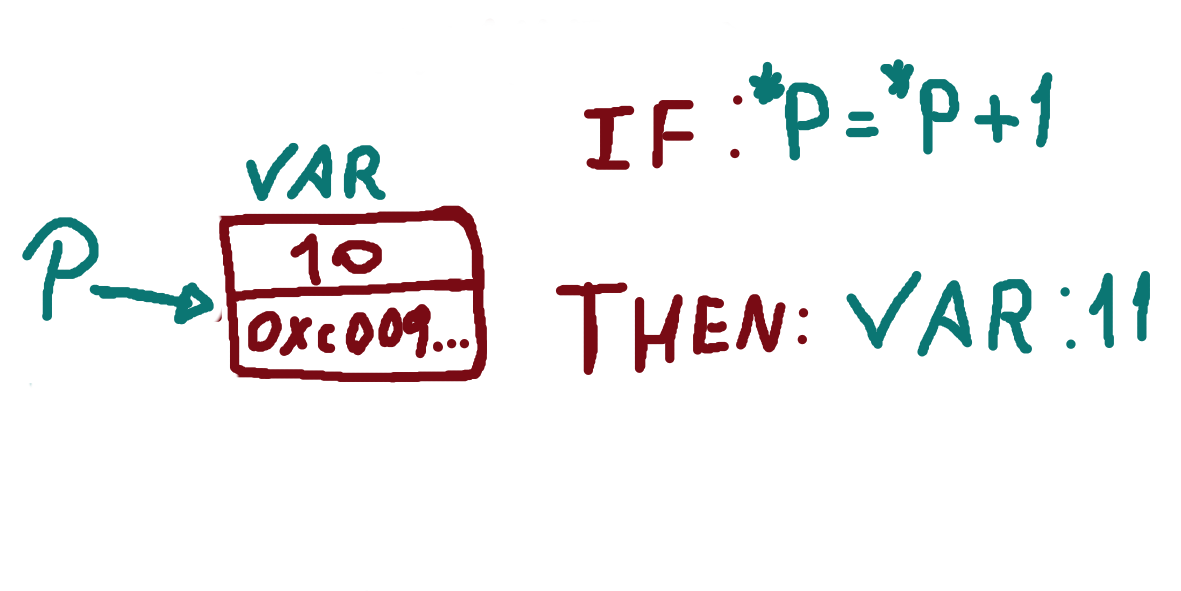 VAR
P
10
0xc009...
IF :*P=*P+1
THEN: VAR:11